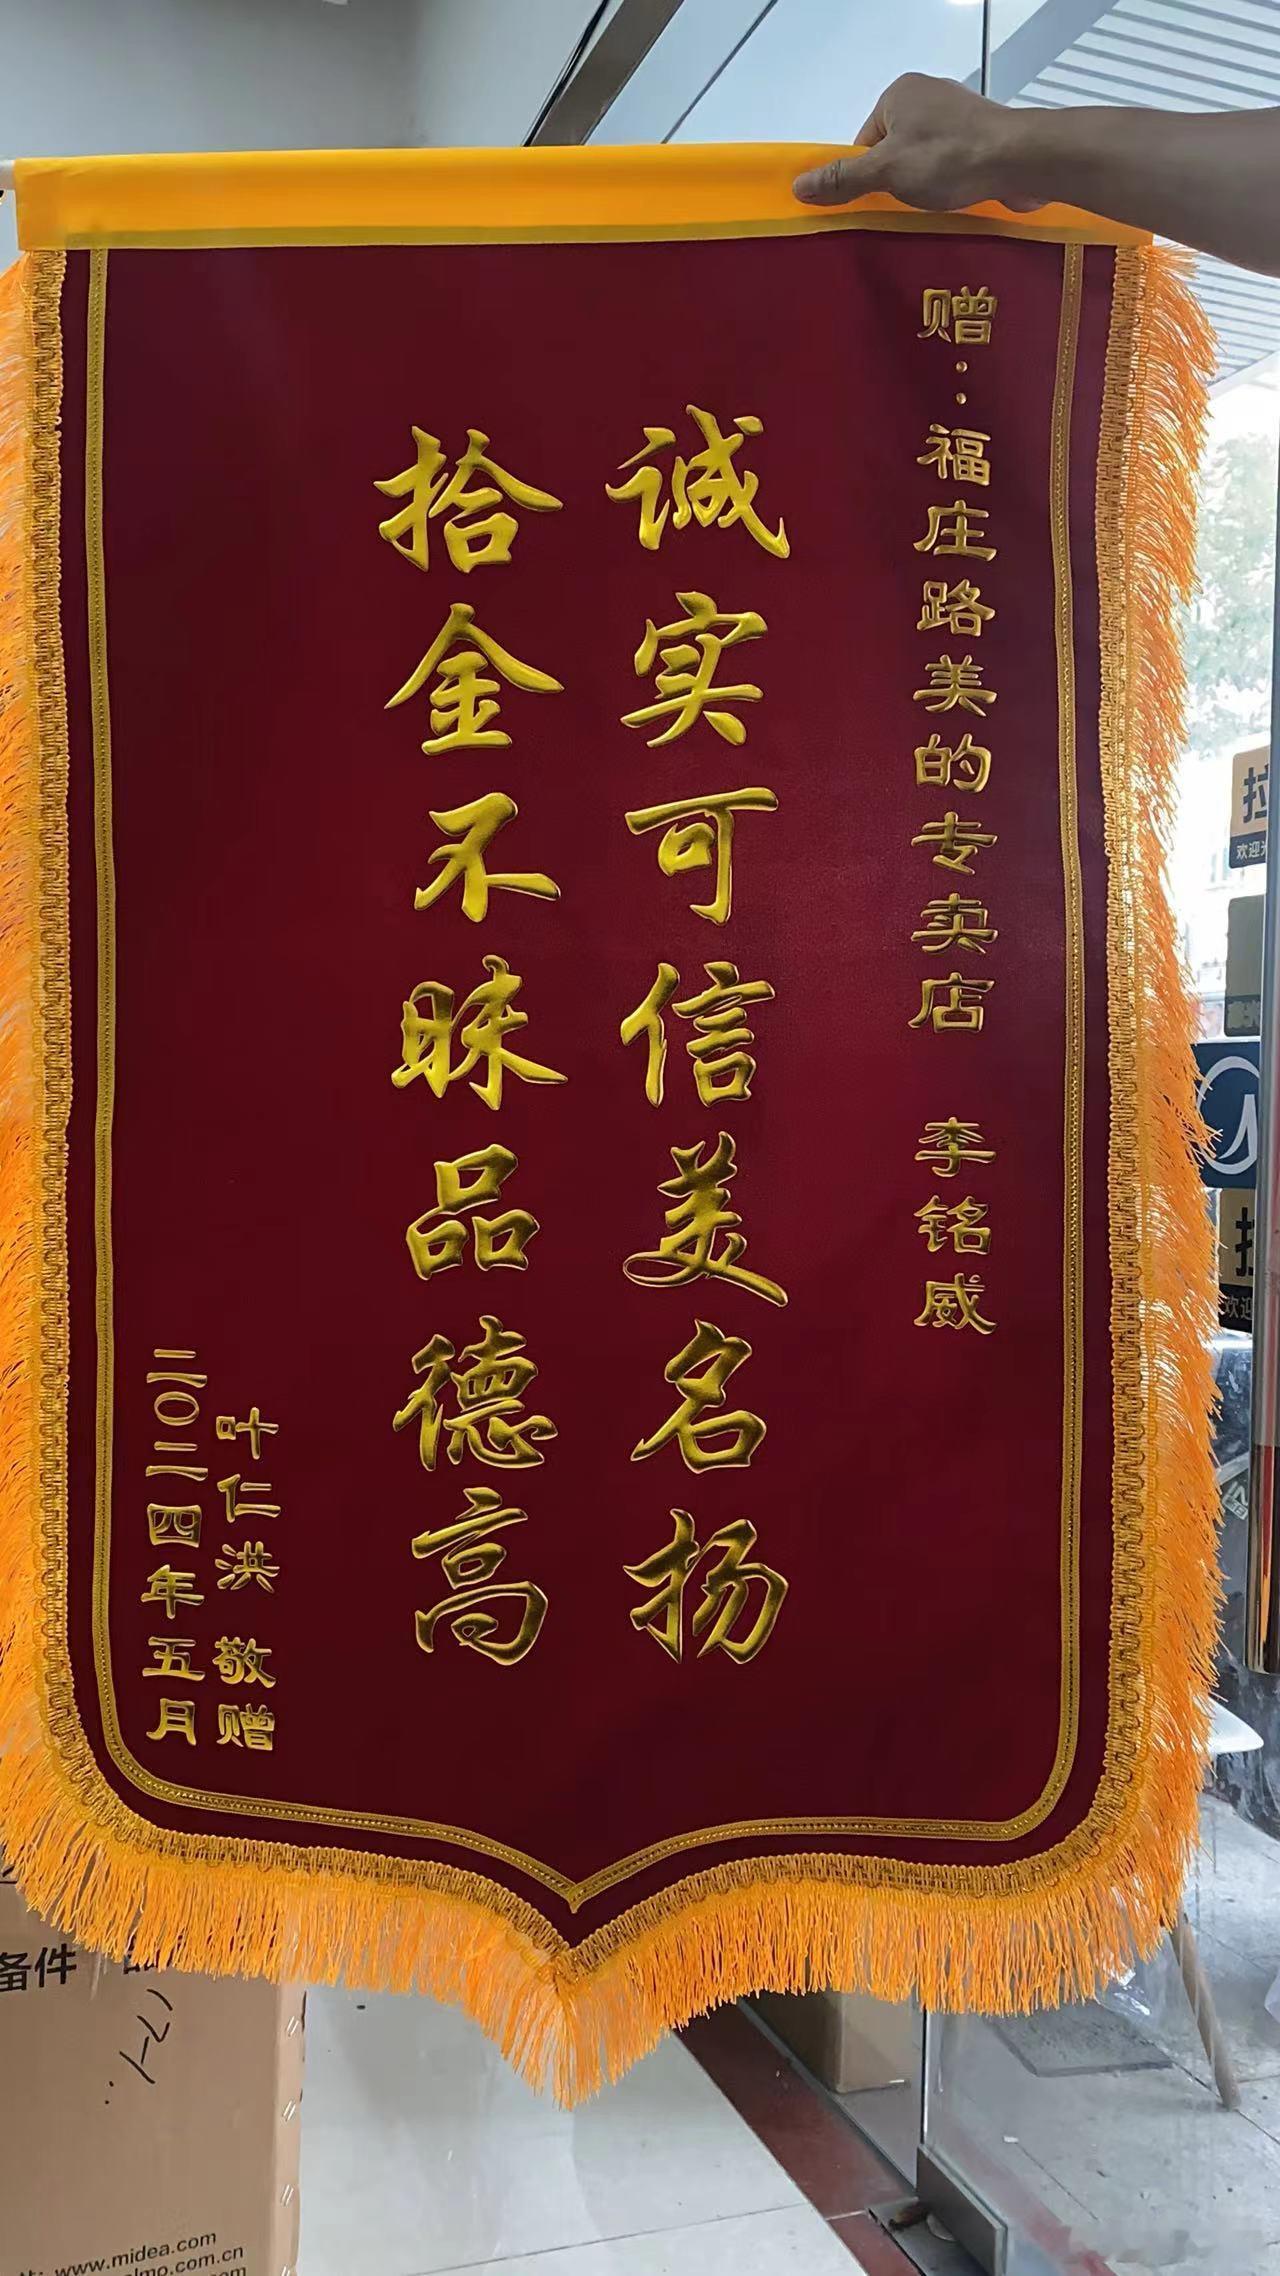 赠：福庄路美的专卖店 李铭威
诚实可信美名扬
拾金不昧品德高
叶仁洪 敬赠
二〇二四年五月
拉
欢迎
拉
欢迎
备件
www.midea.com